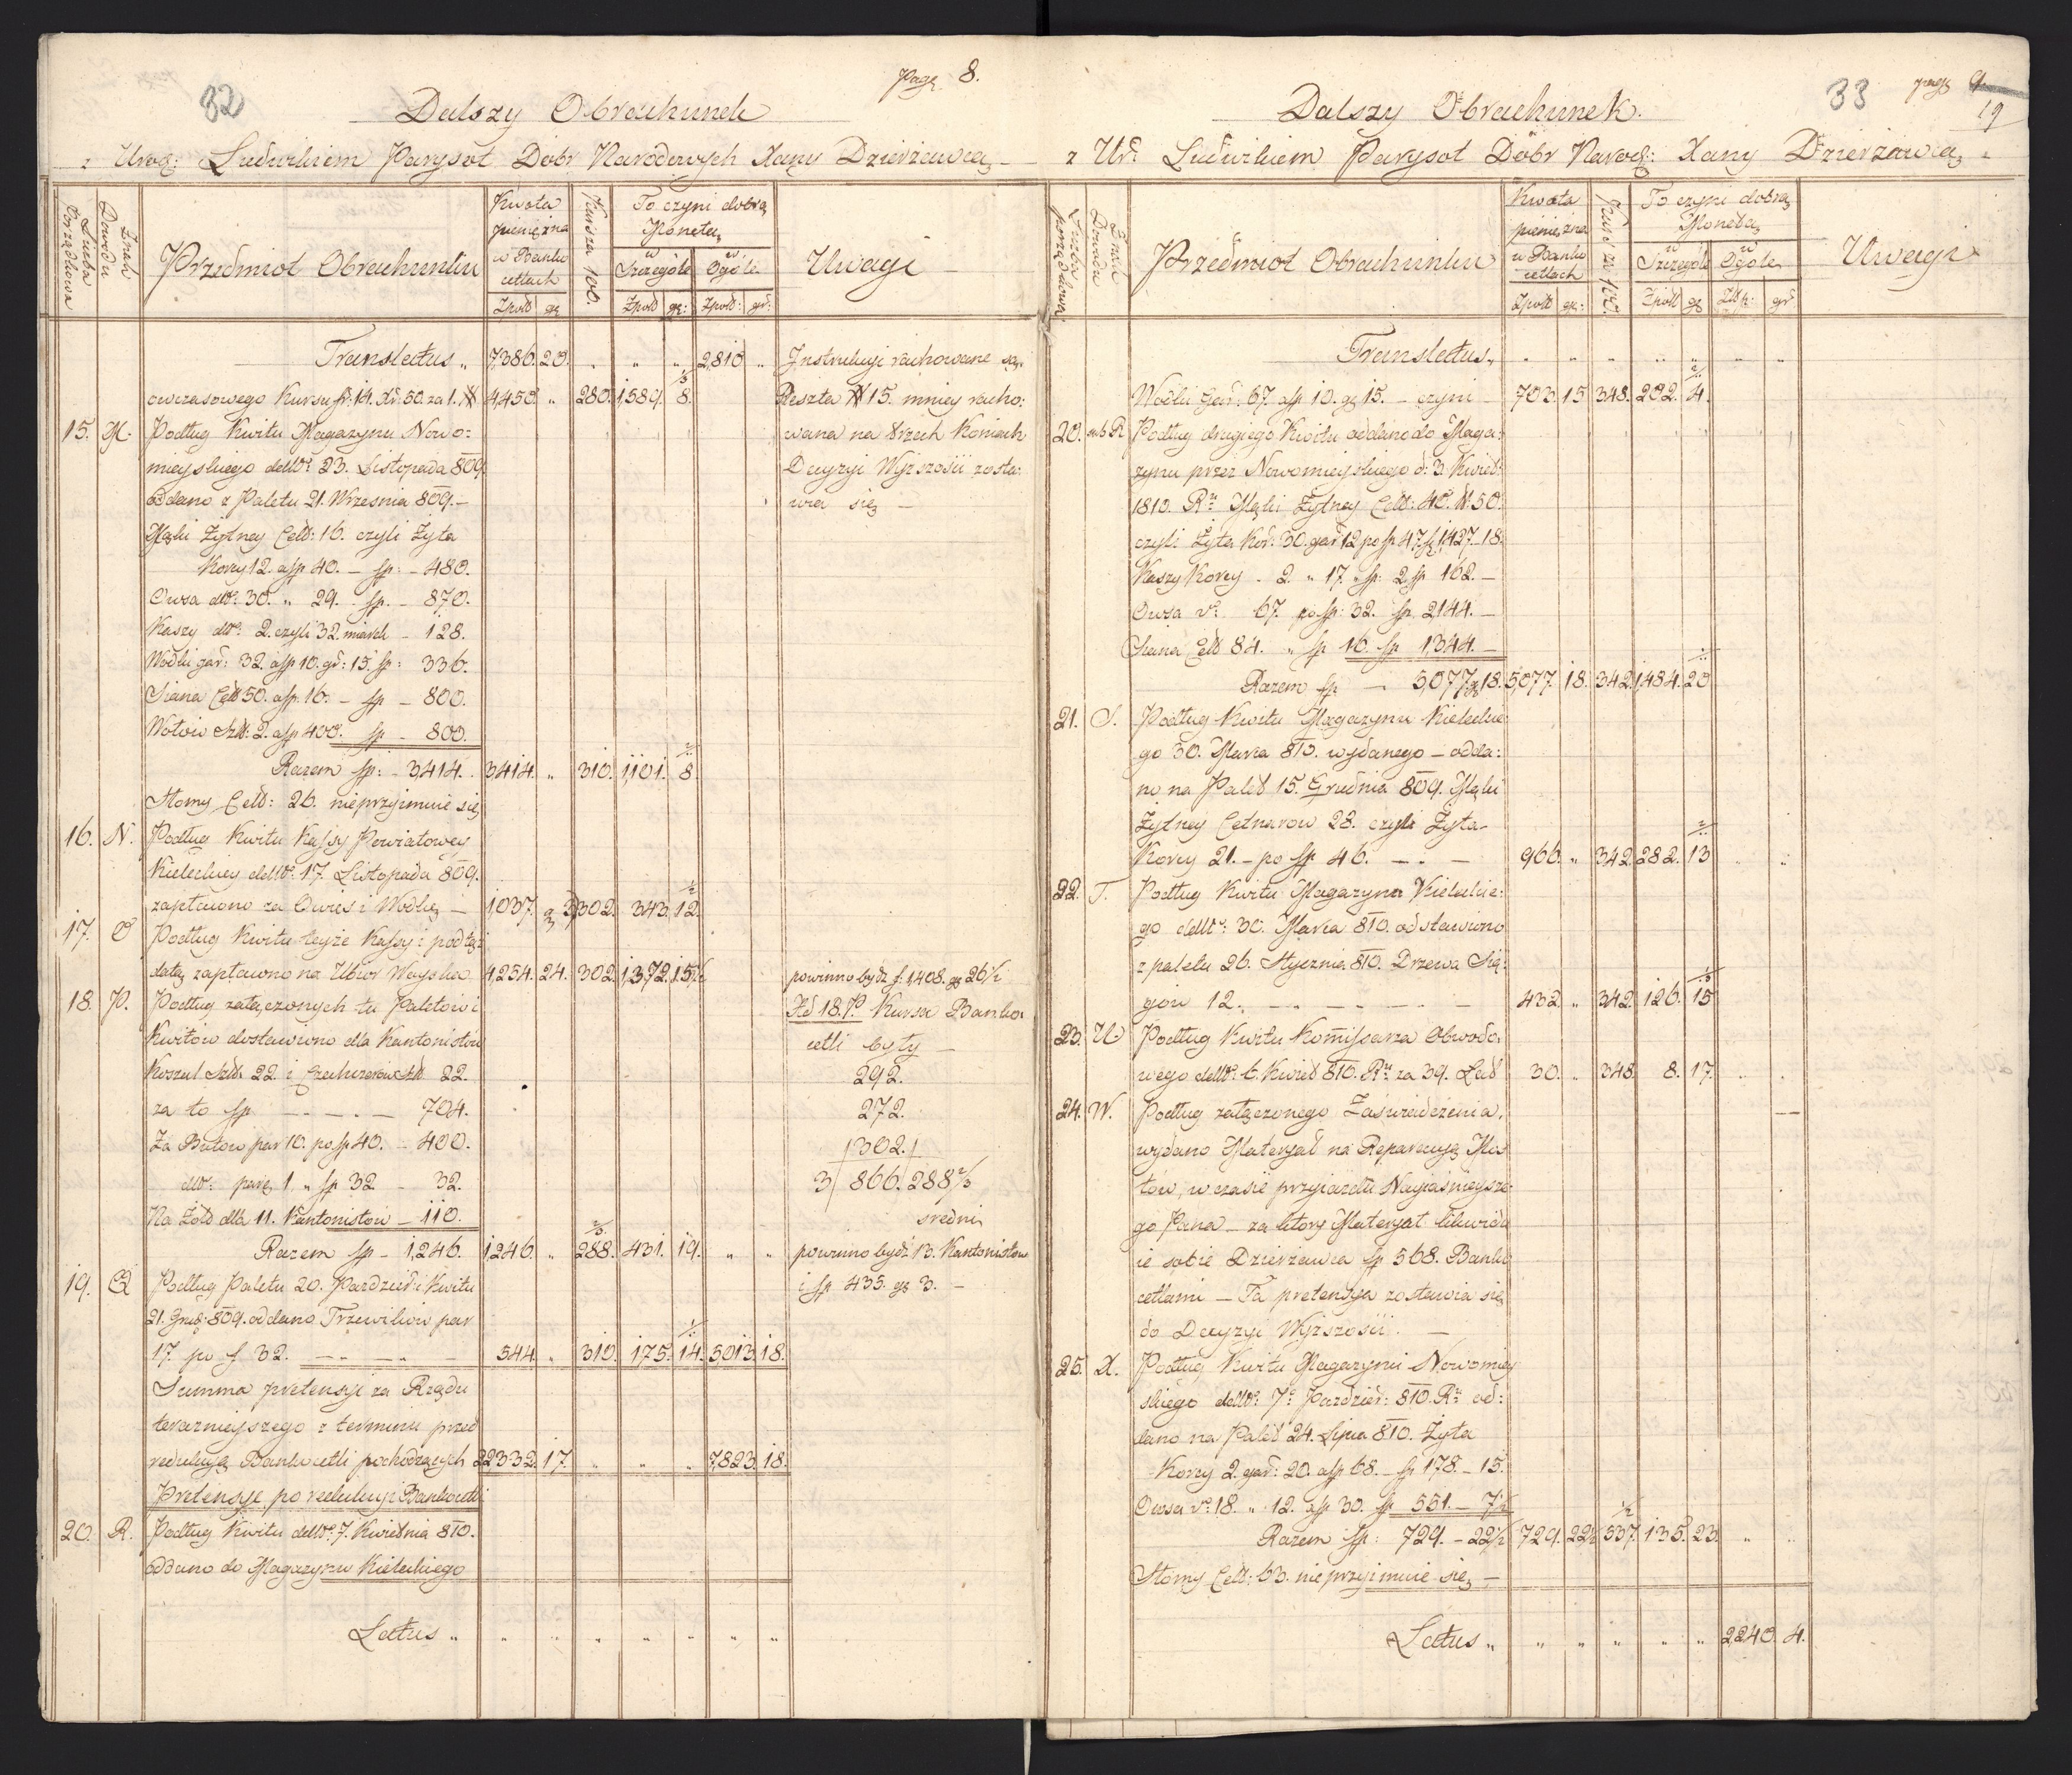 32
Page 8.
Dalszy Obrachunek
z Urog: Ludwikiem Parysot Dobr Narodowych Xany Dzierżawcą
Liczba Porządkowa
Znak Dowodu
Przedmiot Obrachunku
Kwota pieniężna w Banko cetlach
Zpold gr
Kurs za 100.
To czyni dobrą Monetą
w Szczególe w Ogóle
Zpold gr: Zpold: gr:
Uwagi
Translatus " 7,386. 20. " " " 2,810 " Instrukcyi rachowane są.
owczasowego Kursu fr: 14. Xr. 50. za 1. # 4,450. " 280. 1,589. 8. 1/3 Reszta # 15. mniey racho:
15. M. Podług Kwitu Magazynu Nowo: wana na trzech Koniach
mieyskiego dettо 23. Listopada 809 Decyzyi Wyższości zosta:
oddano z Paletu 21. Wrzesnia 809.– wia się –
Mąki Żytney Cetr: 16. czyli Żyta
Korcy 12. a fp 40. – fp: – 480.
Owsa dtto 30. " 29. – fp. – 870.
Kaszy dtto 2. czyli 32. miarek – 128.
Wodki gar: 32. a fp 10. gr: 15. fp: 336.
Siana Cetr 50. a fp. 16. – fp – 800.
Wołow Sztk: 2. a fp 400. fp – 800.
Razem fp: – 3,414. 3414. " 310. 1,101. 8.
Słomy Cetr: 26. nieprzyimuie się
16. N. Podług Kwitu Kassy Powiatowey
Kieleckiey detto 17. Listopada 809.
zapłacono za Owies i Wodkę – 1,037. 9 3/4 302. 343. 12. 1/2
17. O Podług Kwitu teyże Kassy i pod tąż
datą zapłacono na Ubior Woyska. 4,254. 24. 302. 1,372. 15 1/2 powinno bydz f. 1,408. gr 26 1/2
18. P. Podług załączonych tu Paletow i Ad 18. P. Kursa Banko
Kwitow dostawiono dla Kantonistow cetli były –
Koszul Sztk 22. i Czechczerow Sztk 22. 292.
za to fp – – – – 704. 272.
Za Butow par 10. po fp 40. – 400. 302.
dtto parę 1 " fp 32 – 32. 3/ 866. 288 2/3
Na Żołd dla 11. Kantonistow – 110. sredni
Razem fp – 1,246. 1,246 " 288. 2/3 431. 19. " " powinno bydź 13. Kantonistow
19. Q Podług Paletu 20. Pazdzier: i Kwitu i fp 435. gr 3. –
21. Grud: 809. oddano Trzewikow par
17. po f 32. – – – – 544. " 310. 175. 14. 5013. 18.
Summa pretensyi za Rządu
teraznieyszego z terminu przed
redukcyą Bankocetli pochodzących 22332. 17. " " " 7,823. 18.
Pretensye po redukcyi Bankocetli
20. R. Podług Kwitu detto 7. Kwietnia 810.
oddano do Magazynu Kieleckiego
Latus " " " " " " " "
33
page 9
19
Dalszy Obrachunek.
z Ur: Ludwikiem Parysot Dobr Narod: Xany Dzierżawcą
Liczba porządkowa
Znak Dowodu
Przedmiot Obrachunku
Kwota pieniężna w Banko cetlach
Zpold gr:
Kurs za 100.
To czyni dobrą Monetą
w Szczególe w Ogóle
Zpold gr Złp: gr
Uwagi
Translatus " " " " " " " "
Wodki Gar: 67. a fp 10. gr 15. – czyni – 703. 15 348. 202. 4.
20. sub R Podług drugiego Kwitu oddano do Maga:
zynu przez Nowomieyskiego d: 3. Kwiet:
1810. Ru Mąki Żytney Cetr: 40. tt 50.
czyli Żyta Kor: 30. gar 12 po fp 47. fp 1,427–18.
Kaszy Korcy – 2. " 17. " fp: 2 fp 162. –
Owsa vo 67. po fp: 32. fp 2,144. –
Siana Cetr 84. " fp 16. fp 1,344. –
Razem fp – 5,077 gr 18. 5,077. 18. 342. 1,484. 20
21. S. Podług Kwitu Magazynu Kieleckie
go 30. Marca 810. wydanego – odda:
no na Palet 15. Grudnia 809. Mąki
Żytney Cetnarow 28. czyli Żyta –
Korcy 21. – po fp 46. – – – 966. " 342. 282. 13
22. T. Podług Kwitu Magazynu Kieleckie:
go detto: 30. Marca 810. odstawiono
z paletu 26. Stycznia 810. Drzewa Są:
gow 12. – – – – – 432 " 342. 126. 15 1/3
23. U Podług Kwitu Kommissarza Obwodo.
wego detto 6. Kwiet 810. Ru za 39. Lad 30. " 348. 8. 17.
24. W. Podług załączonego Zaswiadczenia,
wydano Materyał na Reparacyą Mos
tow, w czasie przyiazdu Nayiasnieysze:
go Pana – za ktory Materyał likwidu
ie sobie Dzierżawca fp 568. Banko
cetlami – Ta pretensya zostawia się
do Decyzyi Wyższości. –
25. X. Podług Kwitu Magazynu Nowomiey
skiego detto 7o Pazdzier: 810. Ru od:
dano na Palet 24. Lipca 810. Żyta
Korcy 2. gar: 20. a fp 68. – fp 178. – 15.
Owsa vo 18. " 12. a fp 30. fp 551. – 7 1/2
Razem fp: 729. – 22 1/2 729. 22 1/2 537. 1/2 135. 23. " "
Słomy Cetr: 63. nieprzyimuie się –
Latus " " " " " " 2,240. 4.